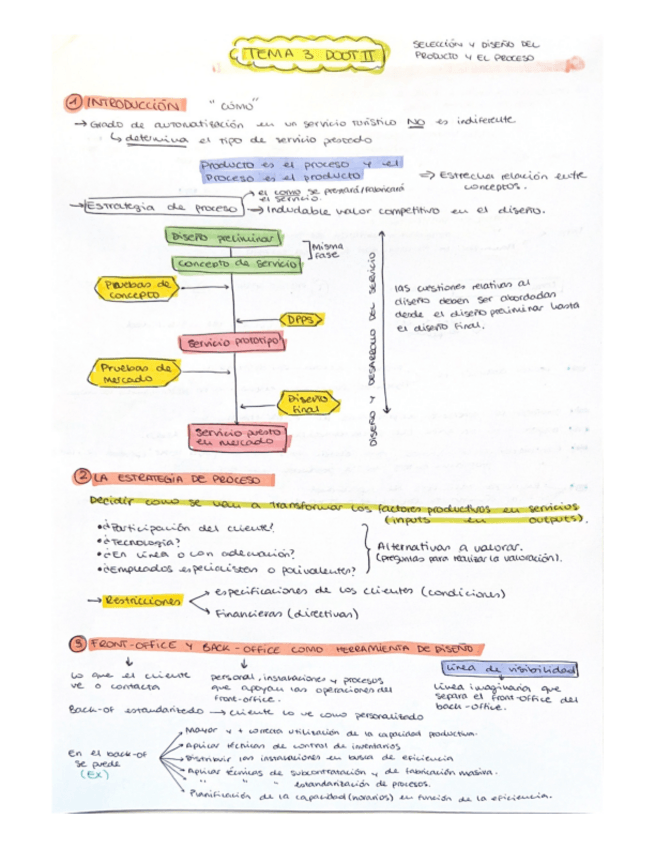 TEMA 3 DOOT II
SELECCIÓN Y DISEÑO DEL
PRODUCTO Y EL PROCESO
① INTRODUCCIÓN "CÓMO"
→ Grado de automatización en un servicio turístico NO es indiferente
↳ determina el tipo de servicio prestado
Producto es el proceso y el
Proceso es el producto
⇒ Estrecha relación entre
conceptos.
→ Estrategia de proceso
→ el como se prestará/fabricará
el servicio.
→ Indudable valor competitivo en el diseño.
Diseño preliminar
Misma
fase
Concepto de servicio
Pruebas de
concepto
DPPS
Servicio prototipo
Pruebas de
mercado
Diseño
final
Servicio puesto
en mercado
DISEÑO Y DESARROLLO DEL SERVICIO
las cuestiones relativas al
diseño deben ser abordadas
desde el diseño preliminar hasta
el diseño final.
② LA ESTRATEGIA DE PROCESO
Decidir como se van a transformar los factores productivos en servicios
(inputs en outputs).
• ¿Participación del cliente?
• ¿Tecnología?
• ¿En línea o con adecuación?
• ¿Empleados especialistas o polivalentes?
Alternativas a valorar.
(preguntas para realizar la valoración).
→ Restricciones
especificaciones de los clientes (condiciones)
Financieras (directivas)
③ FRONT-OFFICE Y BACK-OFFICE COMO HERRAMIENTA DE DISEÑO
Lo que el cliente
ve o contacta
personal, instalaciones y procesos
que apoyan las operaciones del
front-office.
Línea de visibilidad
Línea imaginaria que
separa el front-office del
back-office.
Back-of estandarizado → cliente lo ve como personalizado
En el back-of
se puede
(Ex)
Mayor y + correcta utilización de la capacidad productiva.
Aplicar técnicas de control de inventarios
Distribuir las instalaciones en busca de eficiencia
Aplicar técnicas de subcontratación y de fabricación masiva.
" " " estandarización de procesos.
Planificación de la capacidad (horarios) en función de la eficiencia.